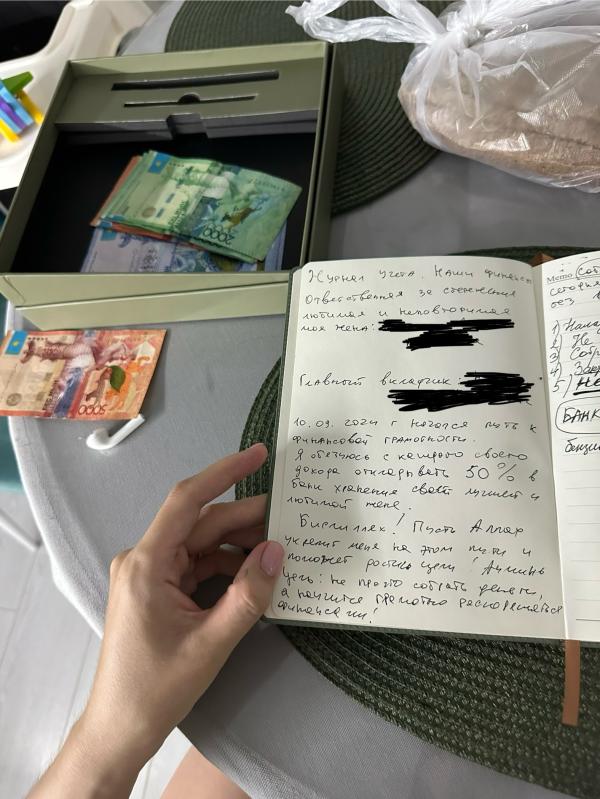 Журнал учета. Наши финансы
Ответственная за сбережения
любимая и неповторимая
моя жена:
Главный вкладчик:
10.09.2024 г начался путь к
финансовой грамотности.
Я обязуюсь с каждого своего
дохода откладывать 50% в
банк хранения своей лучшей и
любимой жене.
Бисмиллях! Пусть Аллах
укрепит меня на этом пути и
поможет достичь цели! Аминь
Цель: не просто собрать деньги,
а научится грамотно распоряжаться
финансами!
Memo
сегодня
без
1)
2) Не
3) Собр
4)
5) НЕ
БАНК
бензин
2000
5000